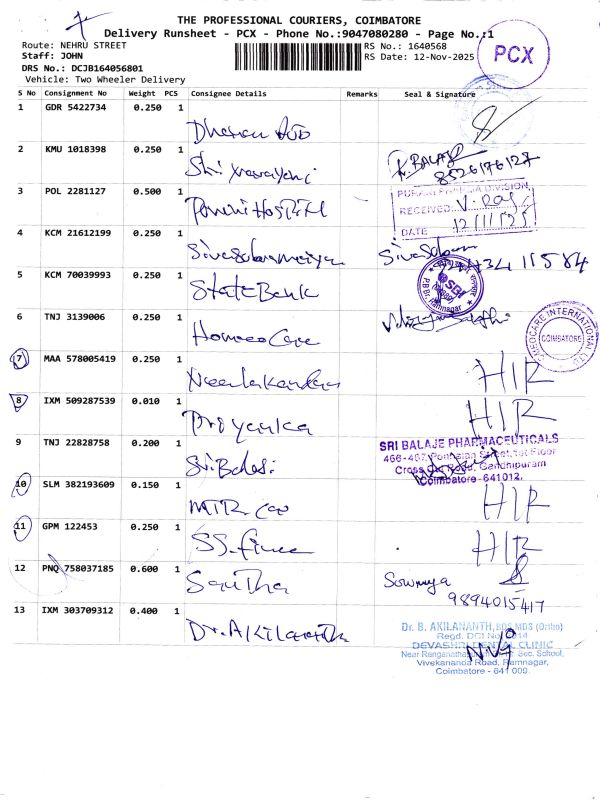 THE PROFESSIONAL COURIERS, COIMBATORE
Delivery Runsheet - PCX - Phone No.:9047080280 - Page No.:1
Route: NEHRU STREET
Staff: JOHN
DRS No.: DCJB164056801
Vehicle: Two Wheeler Delivery
RS No.: 1640568
RS Date: 12-Nov-2025
PCX
S No Consignment No Weight PCS Consignee Details Remarks Seal & Signature
1 GDR 5422734 0.250 1
2 KMU 1018398 0.250 1 Shri
R. BALAJI
8526176127
3 POL 2281127 0.500 1
DIVISION
RECEIVED V. Raj
DATE 12/11/25
4 KCM 21612199 0.250 1 Sivasubramaniyan Sivasubram
11584
5 KCM 70039993 0.250 1 State Bank
SBI
Ramnagar
6 TNJ 3139006 0.250 1 Homeo Care
HOMEOCARE INTERNATIONAL
COIMBATORE
7 MAA 578005419 0.250 1 Neelakandan HIR
8 IXM 509287539 0.010 1 Priyanka HIR
9 TNJ 22828758 0.200 1 Sri Balaji
SRI BALAJE PHARMACEUTICALS
466-467, Ponnaian Street, 1st Floor
Cross Cut Road, Gandhipuram
Coimbatore - 641012.
10 SLM 382193609 0.150 1 HIR
11 GPM 122453 0.250 1 HIR
12 PNQ 758037185 0.600 1
Sowmya
9894015417
13 IXM 303709312 0.400 1 Dr. Akilananth
Dr. B. AKILANANTH, BDS, MDS (Ortho)
Regd. DCI No.
DEVASHRI DENTAL CLINIC
Near Sec. School,
Vivekananda Road, Ramnagar,
Coimbatore - 641 009.